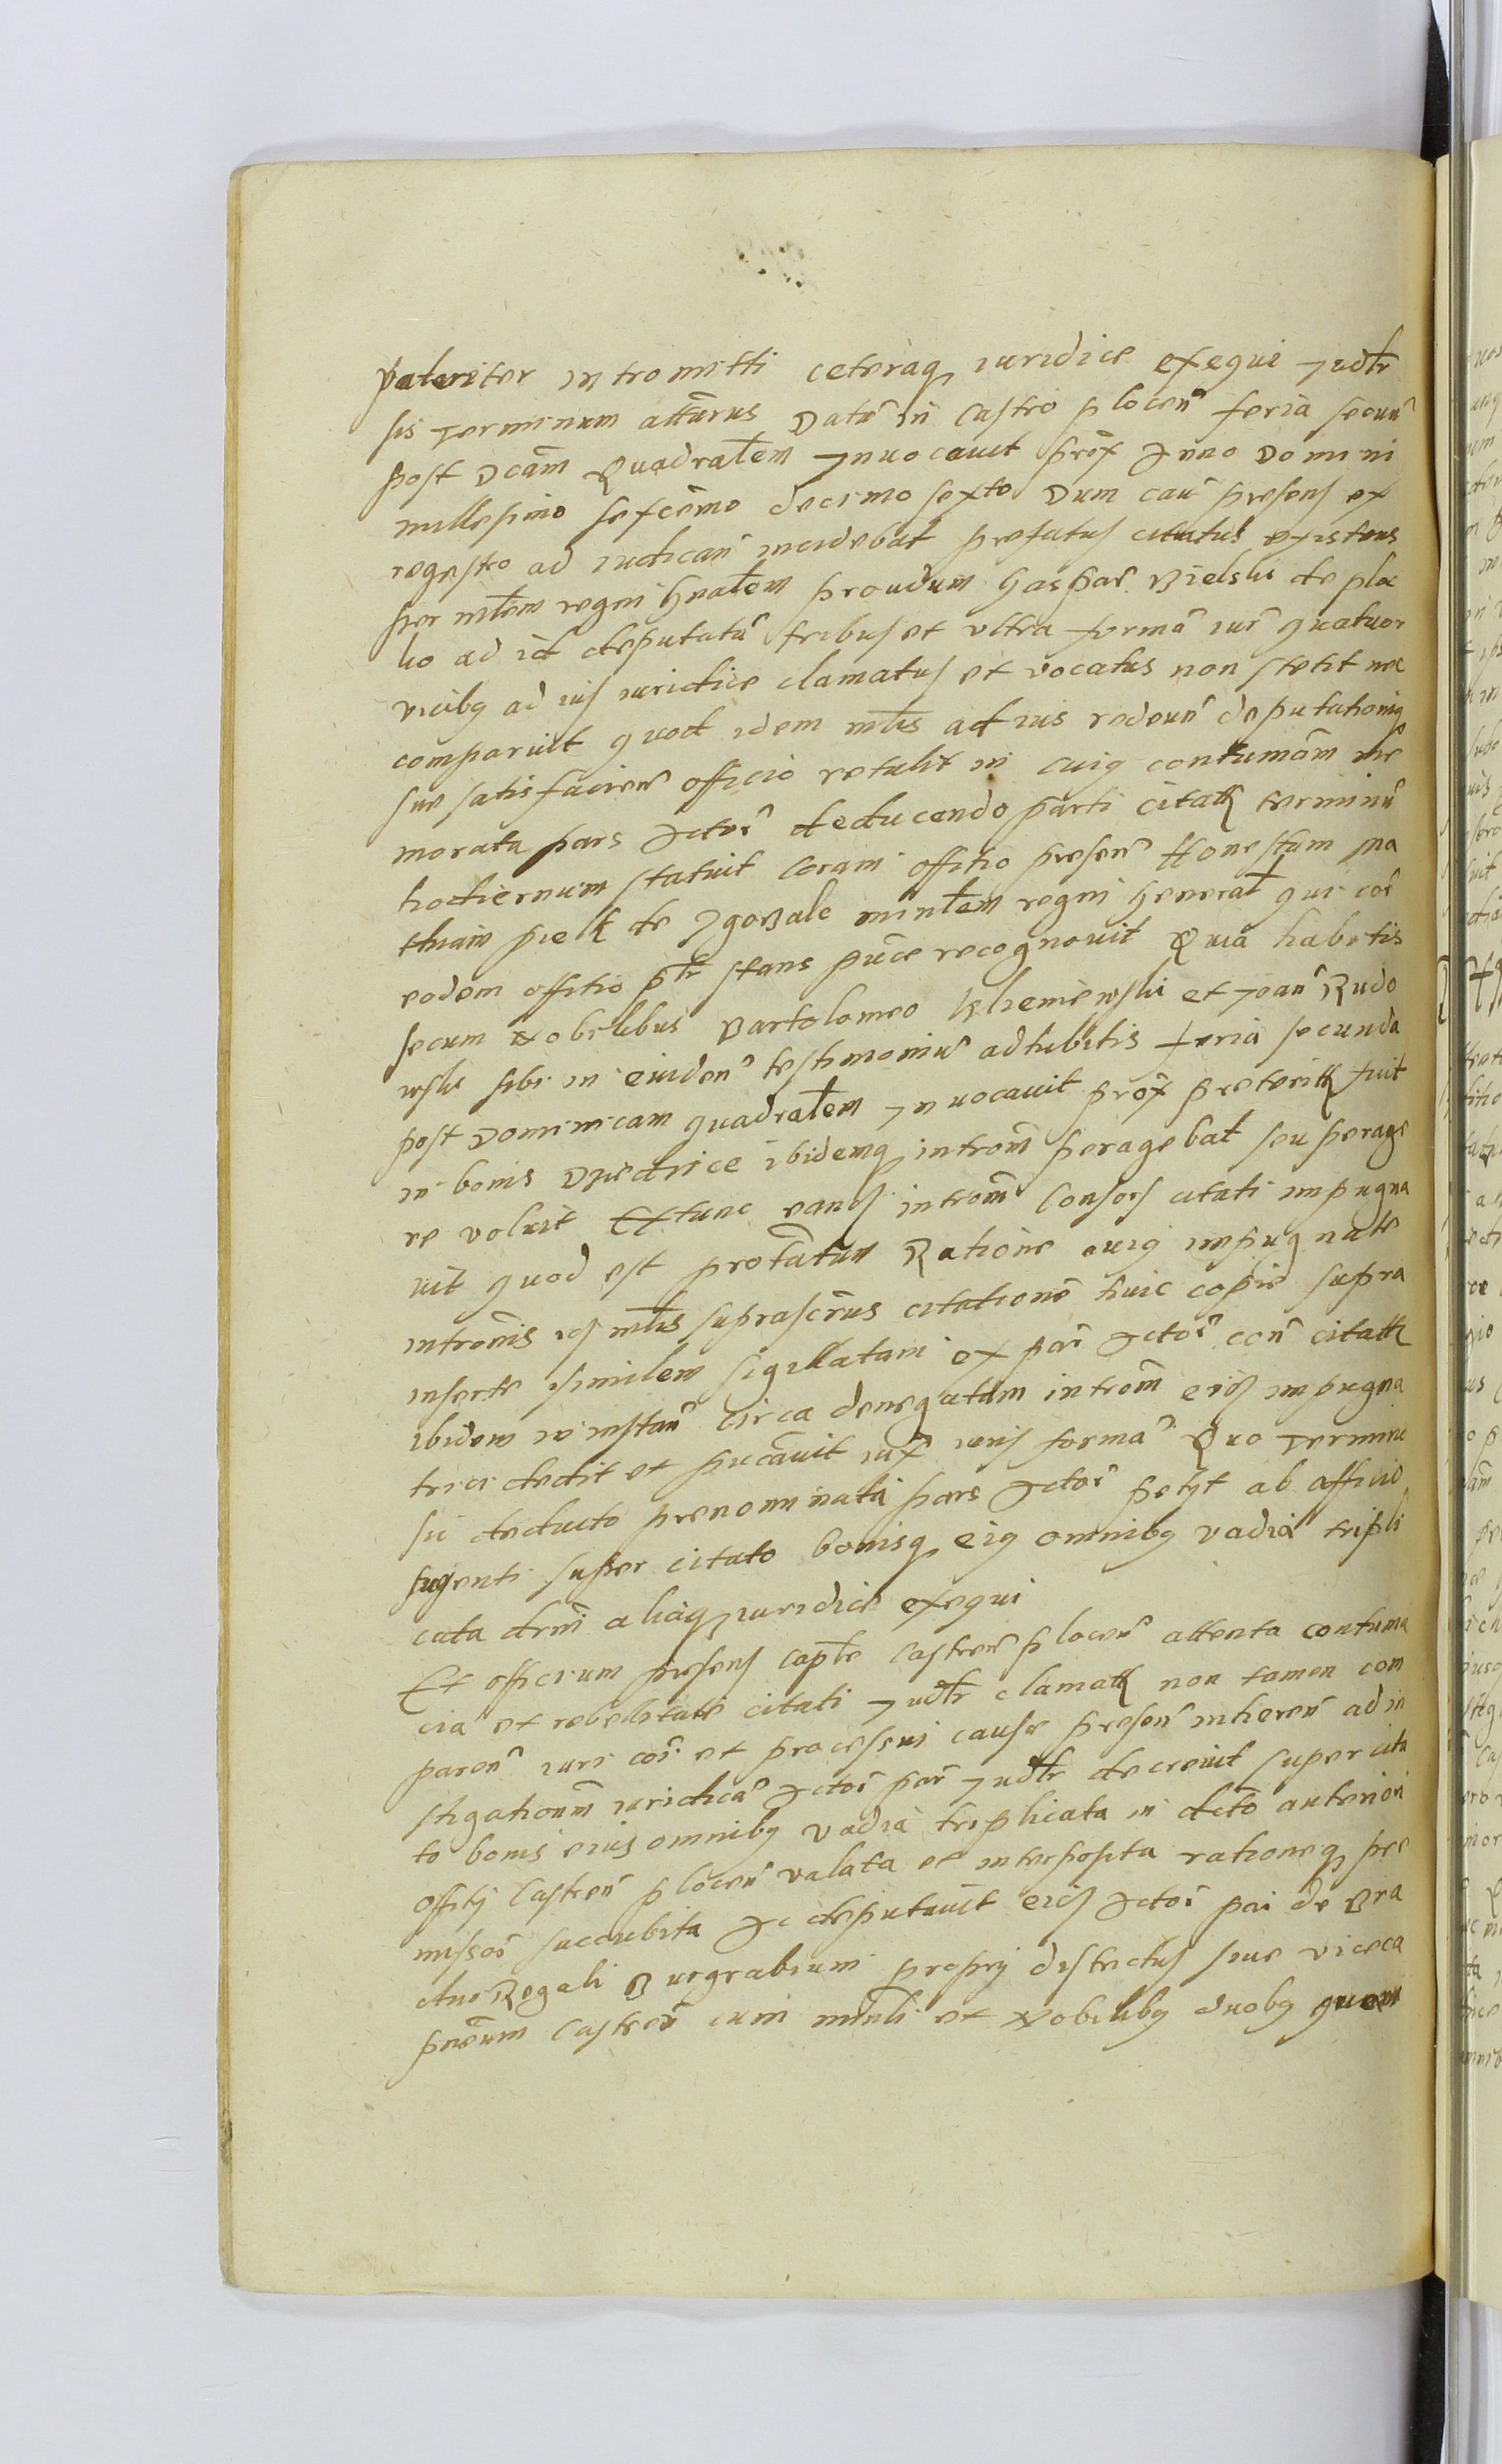 pateriter intromitti ceteraq iuridice exequi Judtr
sis Terminum attūrus Datū in Castro plocen̄ feria secun̄
post Dcam̄ Quadralem Invocavit prox Anno Domini
millesimo sexcēmo decimo sexto Dum cau presens ex
regestro ad iudican̄ incidebat prefatus citatus existens
per mlem regni Gnalem proudum Gaspar Bielski de ploc
ko ad id deputatū tribus et ultra formā iur̄ quatuor
vicibq ad ius iuridice clamatus et vocatus non stetit nec
comparuit quod idem mlis ad ius redeun̄ deputationiq
sue satisfacien̄ officio retulit in cuiq contumām me
morata pars Actor̄ deducendo parti citatt terminū
hodiernum statuit coram offitio presen̄ Honestum Ma
thiam pielt de Zgorzale minlem regni General qui cor̄
eodem offitio ptr stans puce recognovit Quia habetis
secum Nobilibus Bartolomeo Kliemiewski et Joan̄ Rudo
wski sibi in eviden̄ testimoniū adhibitis feria secunda
post Dominicam quadralem Invocavit prox preteritt fuit
in bonis Dziedzice ibidemq introm̄ peragebat seu perage
re voluit Extunc eand introm̄ Consors citati impugna
vit quod est protātum Ratione cuiq impugnate
introm̄is id mlis suprascrius citationē huic copie supra
inserte similem sigillatam ex par̄ Actor̄ con̄ citatt
ibidem in instan̄ circa denegatam introm̄ eid impugna
trici dedit et pucāvit iux iuris formā Quo Termino
sic deducto prenominata pars Actor̄ petyt ab officio
super citato bonisq eiq omnibq vadia tripli
cata drni aliaq iuridice exequi
Et officium presens Captle Castren̄ plocen̄ attenta contuma
cia et rebellitate citati Judtr clamatt non tamen com
paren̄ iuri cor̄ et processui cause presen̄ inheren̄ ad in
stigationem̄ iuridicā Actor̄ par̄ Judtr decrevit super cita
to bonis eius omnibq vadia triplicata in dcto anteriori
offitij Castren̄ plocen̄ valata et interposita rationeq pre
missor̄ succubita Ac deputavit eid Actor̄ par̄ de Bra
chio Regali Burgrabium proprij districtus sive viceca
pneūm Castren̄ cum minli et Nobilibq duobq quem